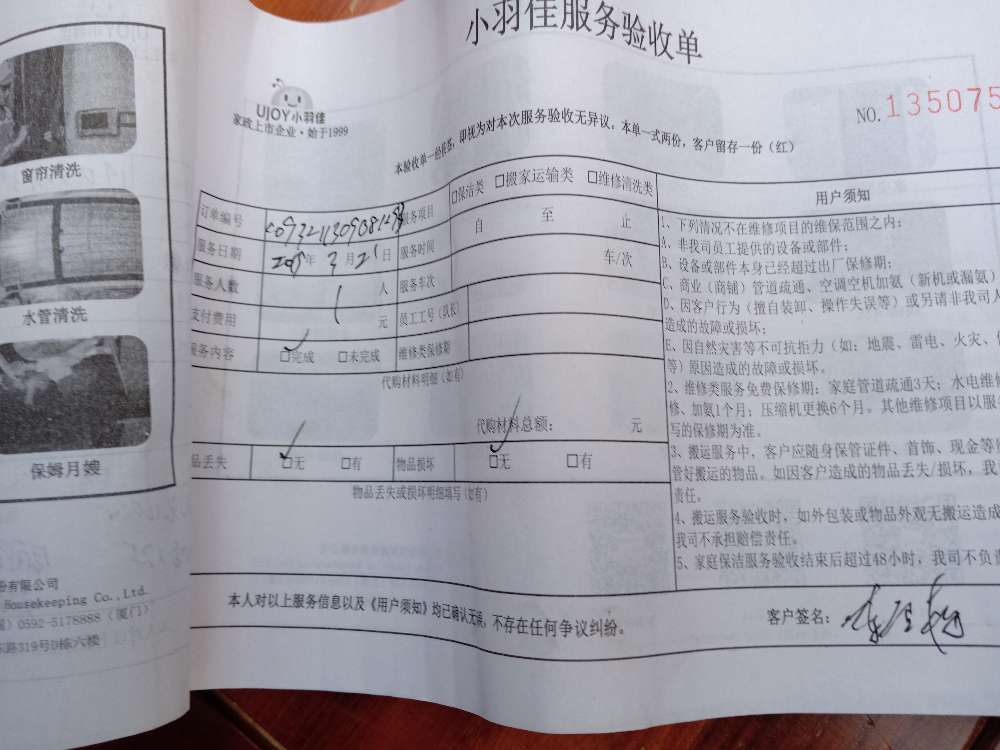 小羽佳服务验收单
UJOY小羽佳
家政上市企业·始于1999
NO.135075
本验收单一经签署,即视为对本次服务验收无异议,本单一式两份,客户留存一份(红)
订单编号
服务项目 □保洁类 □搬家运输类 □维修清洗类
服务日期 年 3月21日 服务时间 自 至 止
服务人数 1人 服务车次 车/次
支付费用 元 员工工号(队长)
服务内容 □完成 □未完成 维修类保修期
代购材料明细(如有)
代购材料总额: 元
品丢失 □无 □有 物品损坏 □无 □有
物品丢失或损坏明细填写(如有)
用户须知
1、下列情况不在维修项目的维保范围之内:
A、非我司员工提供的设备或部件;
B、设备或部件本身已经超过出厂保修期;
C、商业(商铺)管道疏通、空调空机加氨(新机或漏氨)
D、因客户行为(擅自装卸、操作失误等)或另请非我司人
造成的故障或损坏;
E、因自然灾害等不可抗拒力(如:地震、雷电、火灾、
等)原因造成的故障或损坏。
2、维修类服务免费保修期:家庭管道疏通3天;水电维
修、加氨1个月;压缩机更换6个月。其他维修项目以服
写的保修期为准。
3、搬运服务中,客户应随身保管证件、首饰、现金等
管好搬运的物品。如因客户造成的物品丢失/损坏,我
责任。
4、搬运服务验收时,如外包装或物品外观无搬运造成
我司不承担赔偿责任。
5、家庭保洁服务验收结束后超过48小时,我司不负责
本人对以上服务信息以及《用户须知》均已确认无误,不存在任何争议纠纷。
客户签名:
窗帘清洗
水管清洗
保姆月嫂
份有限公司
Housekeeping Co.,Ltd.
0592-5178888 (厦门)
东路319号D栋六楼